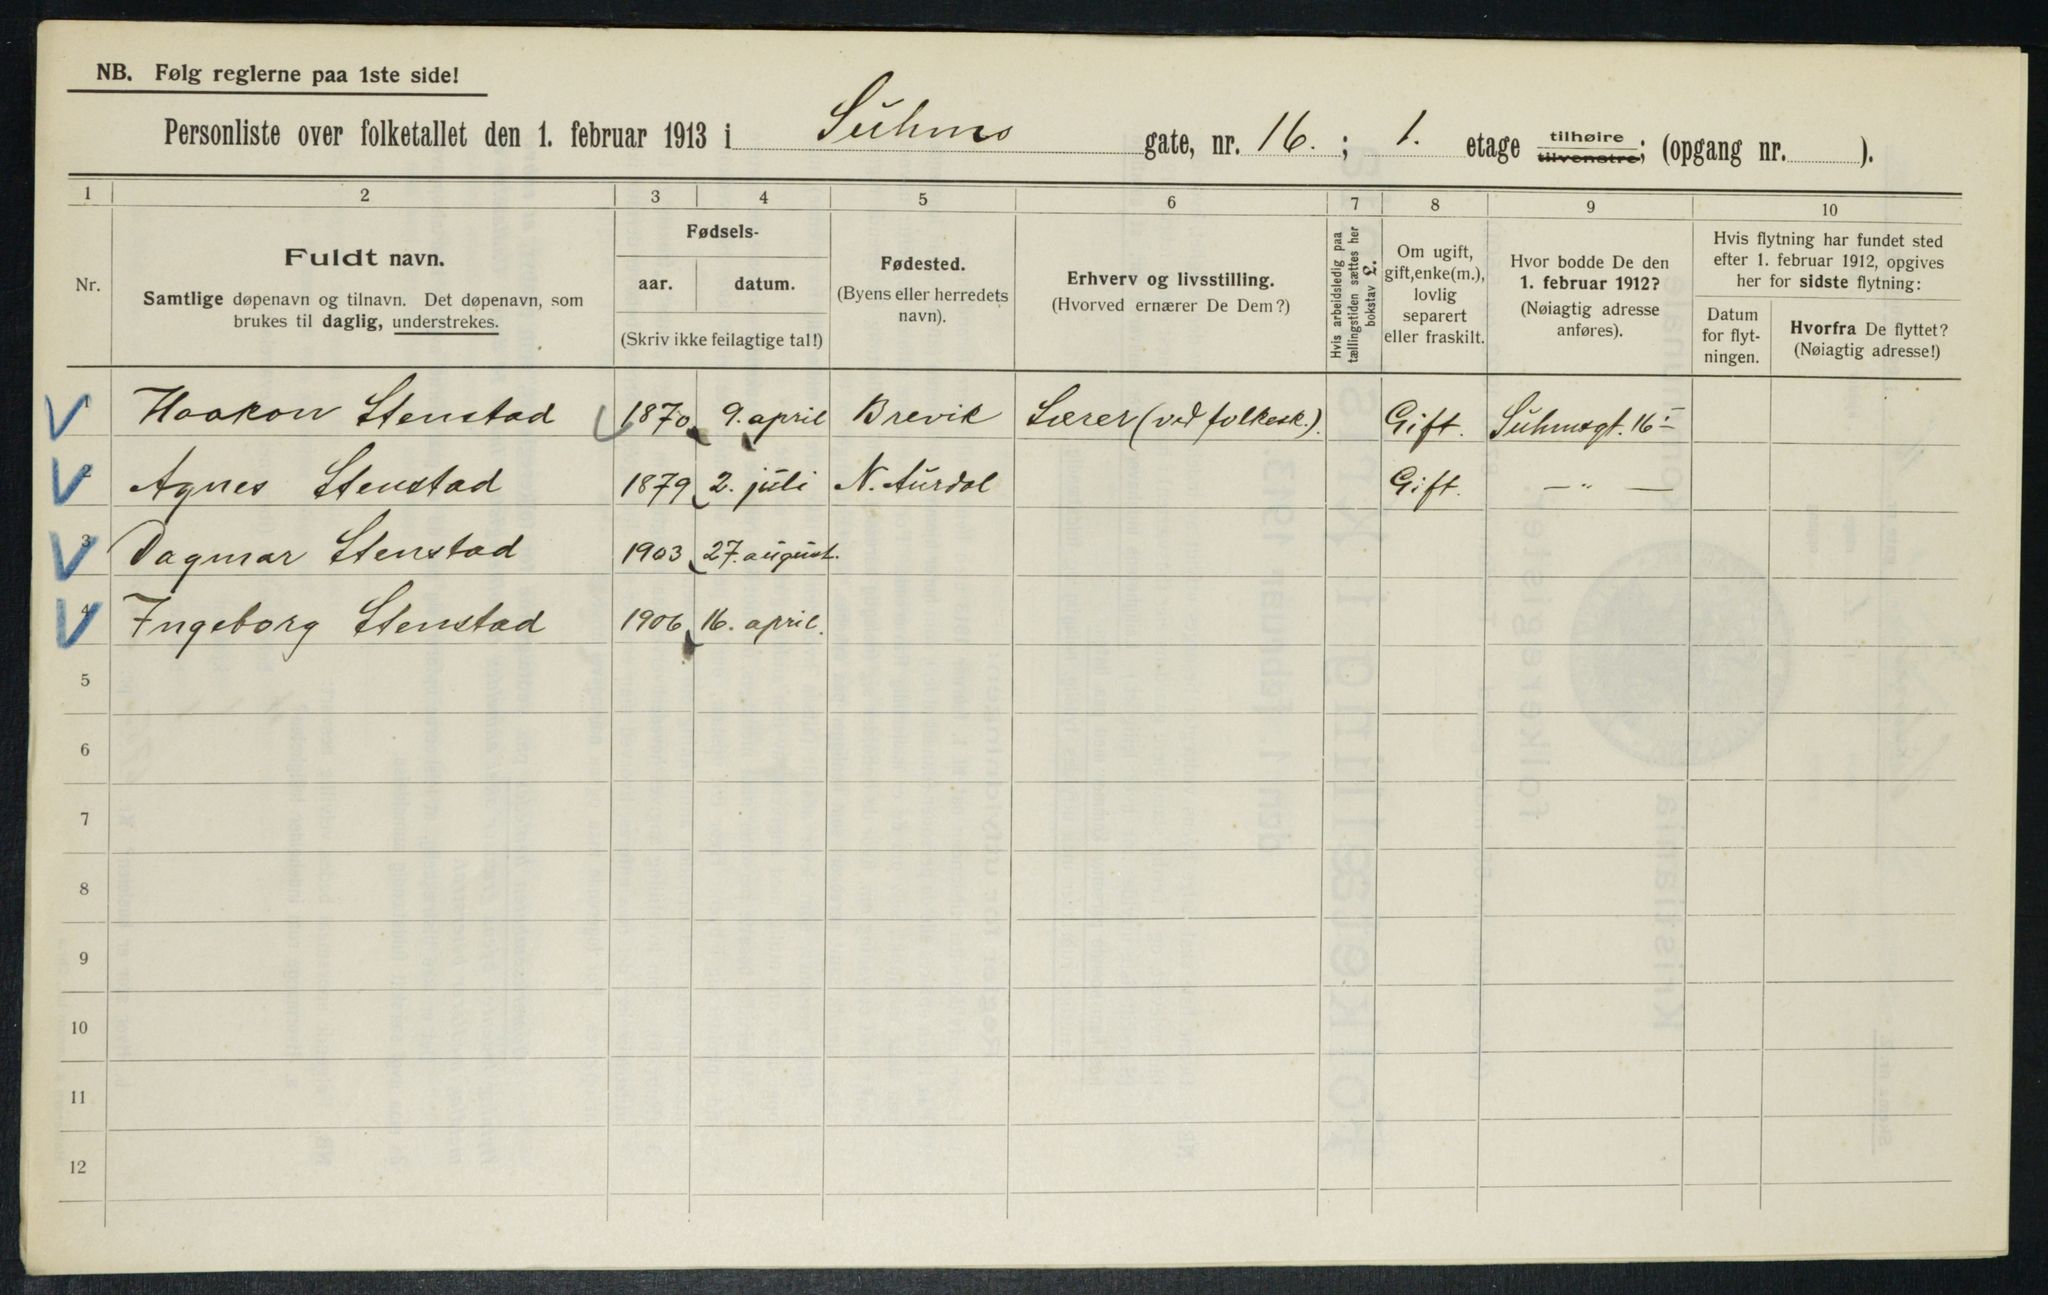 NB. Følg reglerne paa 1ste side!
Personliste over folketallet den 1. februar 1913 i Suhms gate, nr. 16. ; 1. etage tilhøire tilvenstre; (opgang nr. ).
1 2 3 4 5 6 7 8 9 10
Nr.
Fuldt navn.
Samtlige døpenavn og tilnavn. Det døpenavn, som
brukes til daglig, understrekes.
Fødsels-
aar. datum.
(Skriv ikke feilagtige tal!)
Fødested.
(Byens eller herredets
navn).
Erhverv og livsstilling.
(Hvorved ernærer De Dem?)
Hvis arbeidsledig paa
tællingstiden sættes her
bokstav L.
Om ugift,
gift, enke(m.),
lovlig
separert
eller fraskilt.
Hvor bodde De den
1. februar 1912?
(Nøiagtig adresse
anføres).
Hvis flytning har fundet sted
efter 1. februar 1912, opgives
her for sidste flytning:
Datum
for flyt-
ningen.
Hvorfra De flyttet?
(Nøiagtig adresse!)
1 Haakon Stenstad 1870 9. april Brevik Lærer (ved folkesk.). Gift. Suhmsgt. 16 I
2 Agnes Stenstad 1879 2. juli N. Aurdal Gift. — " —
3 Dagmar Stenstad 1903 27. august.
4 Ingeborg Stenstad 1906 16. april.
5
6
7
8
9
10
11
12